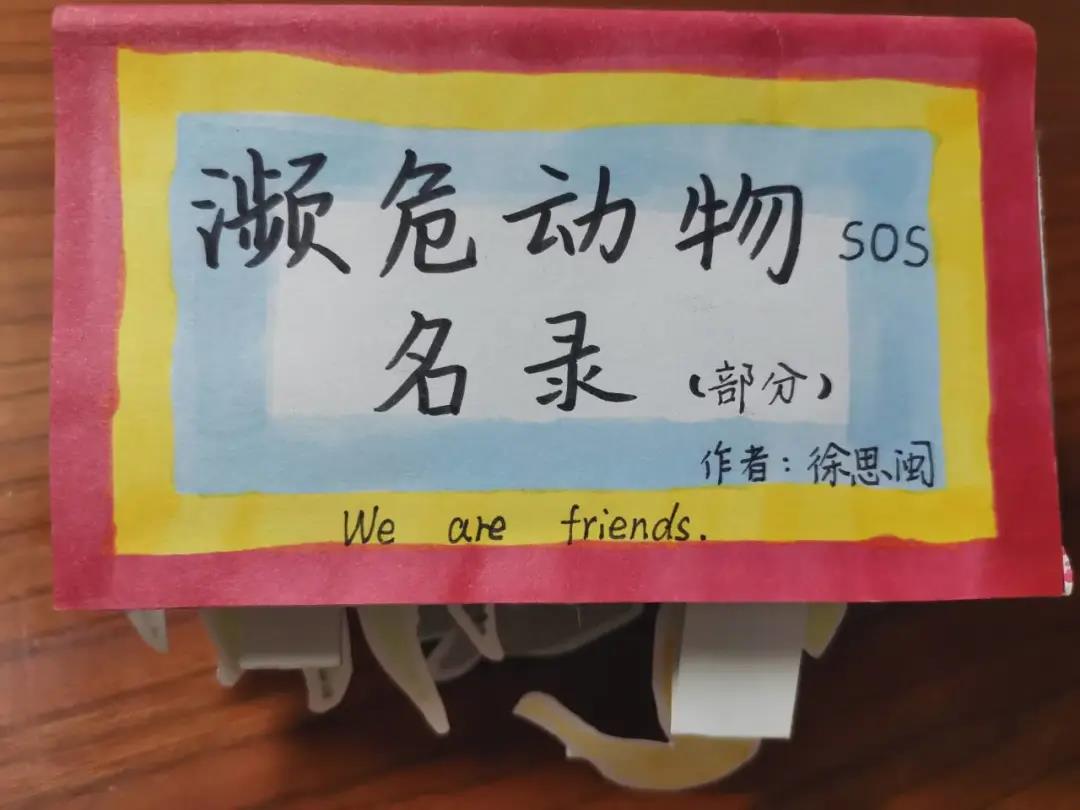 濒危动物 SOS
名录（部分）
作者：徐思闽
We are friends.